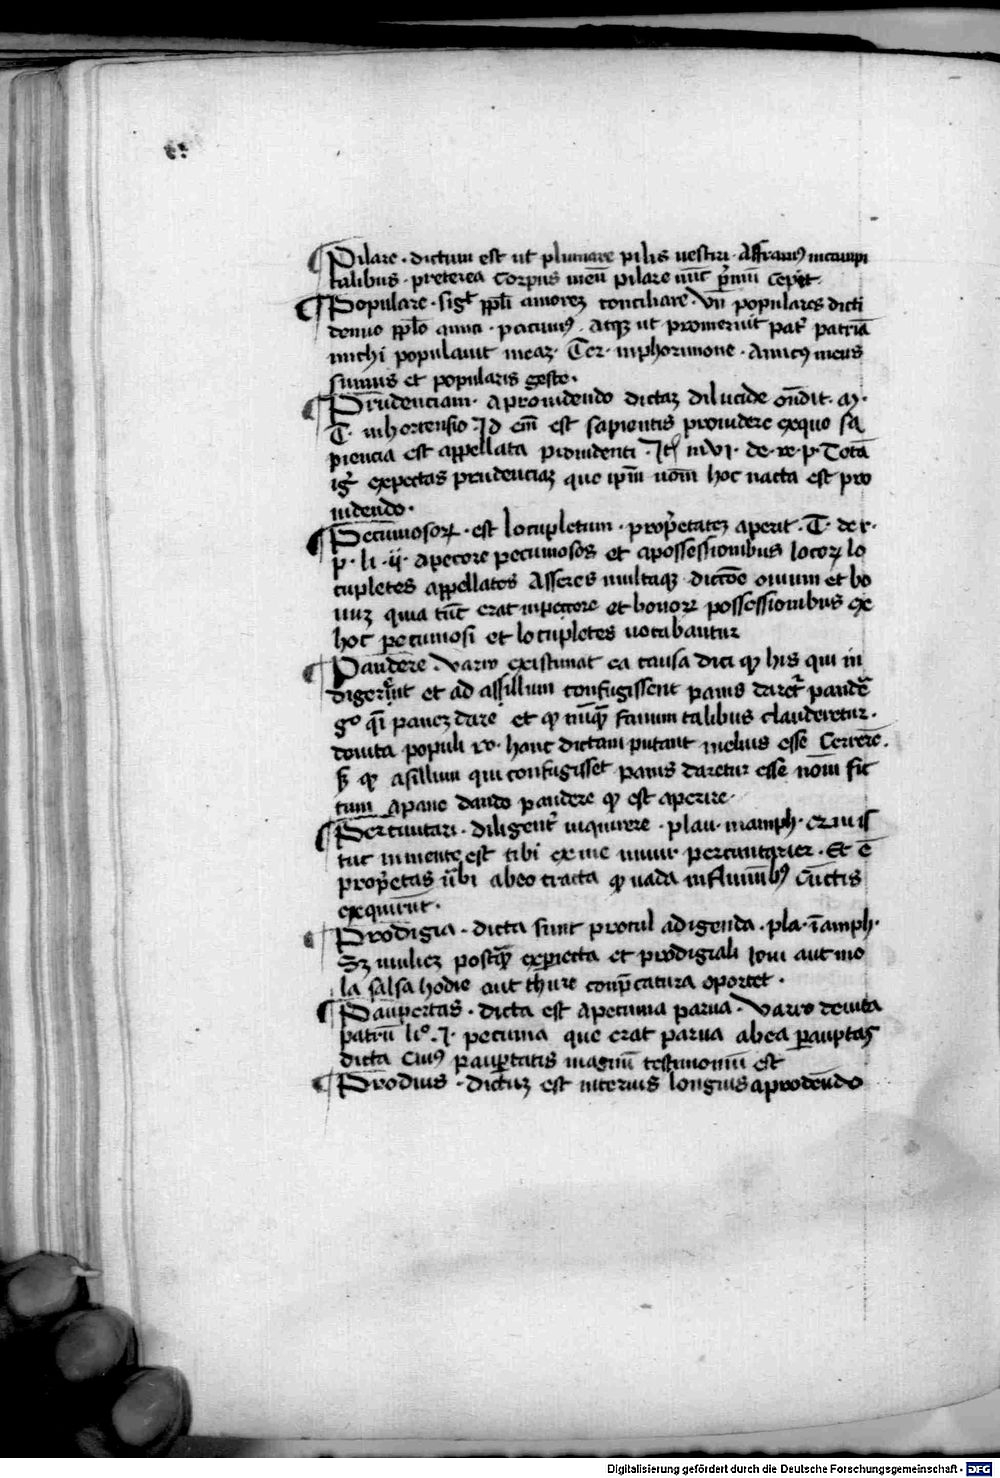 Pilare · dictum est ut plumare pilis uestiri · Affraniꝰ incampi
talibus · preterea corpus meũ pilare nũc p̃mũ cepit
Populare · sigᵗ ppłi amorez conciliare · Vñ populares dicti
denuo ppło amici · pacuuiꝰ · atqꝫ ut promeruit pat̃ patriã
michi populauit meaz · Ter · inphormione · Amicꝰ meus
sumus et popularis geste ·
Prudenciam · aprouidendo dictaz dilucide oñdit · M ·
T · inhortensio · Id em̃ est sapientis prouidere exquo sa
piencia est appellata prouidenti · Itẽ inVI · de · re · p · Totã
igr̃ expectas prudenciaz que ip̃m nom̃ hoc nacta est pro
uidendo ·
Pecuniosoꝝ · est locupletum · prop̃etatez aperit · T · de r ·
p · li · ij · apecore pecuniosos et apossessionibus locoꝝ lo
cupletes appellatos Asseres multaqꝫ dictõe ouium et bo
uuz quia tũc erat inpectore et bonoꝝ possessionibus ex
hoc pecuniosi et locupletes uocabantur
Pandere · Varro existimat ea causa dici qꝫ his qui in
digerũt et ad assillum confugissent panis daret̃ pandẽ
gº q̃i panez dare et qꝫ nũq̃ fanum talibus clauderetur ·
deuita populi ro · hanc dictam putant melius esse Cererẽ ·
ẞ qꝫ asillum qui confugisset panis daretur esse nom̃ fic
tum apane dando pandere qꝫ est aperire ·
Percuntari · diligent̃ inquirere · plau · inamph ·
tuc inmente est tibi ex me percuntarier · Et ẽ
prop̃etas ũbi abeo tracta qꝫ uada influminibꝰ cũctis
exquirũt ·
Prodigia · dicta sunt procul adigenda · pla · ĩamph ·
Sꝫ muliez postq̃ experrecta et prodigiali Ioui aut mo
la salsa hodie aut thure conp̃catura oportet ·
Paupertas · dicta est apecunia parua · Varro deuita
patrũ liº · I · pecunia que erat parua abea pauptas
dicta Cuiꝰ paup̃tatis magnũ testimoniũ est
Prodius · dictuz est interius longius aprodeũdo
Digitalisierung gefördert durch die Deutsche Forschungsgemeinschaft - DFG